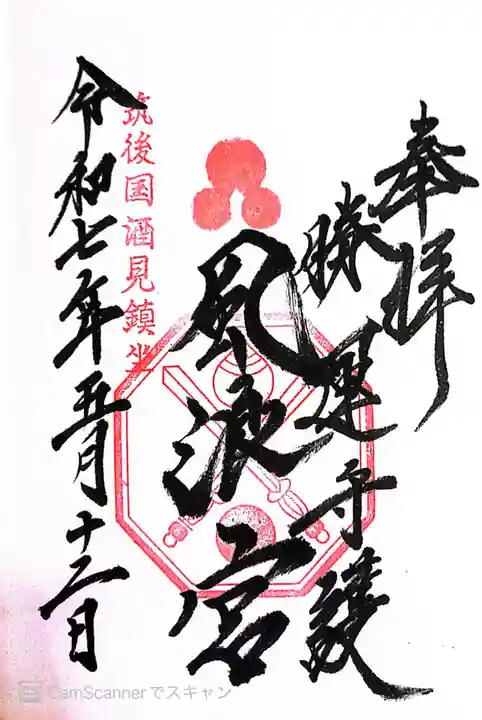 奉拝
勝運守護
風浪宮
筑後国酒見鎮坐
令和七年五月十二日
CamScannerでスキャン